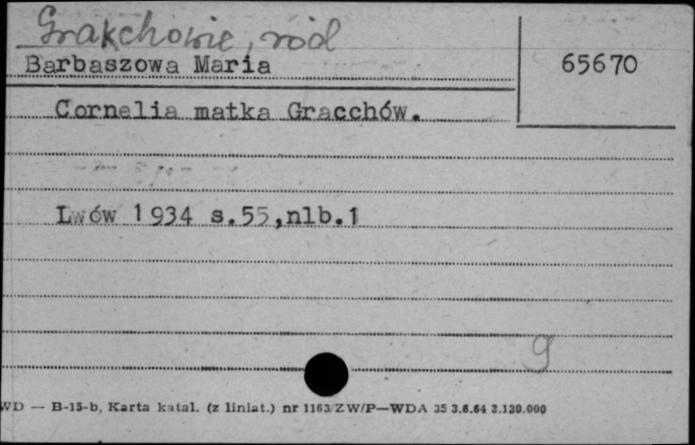 Grakchowie, ród
Barbaszowa Maria
65670
Cornelia matka Gracchów.
Lwów 1934 s.55,nlb.1
9
WD — B-15-b, Karta katal. (z liniat.) nr 1163/ZW/P—WDA 35 3.6.64 3.130.000